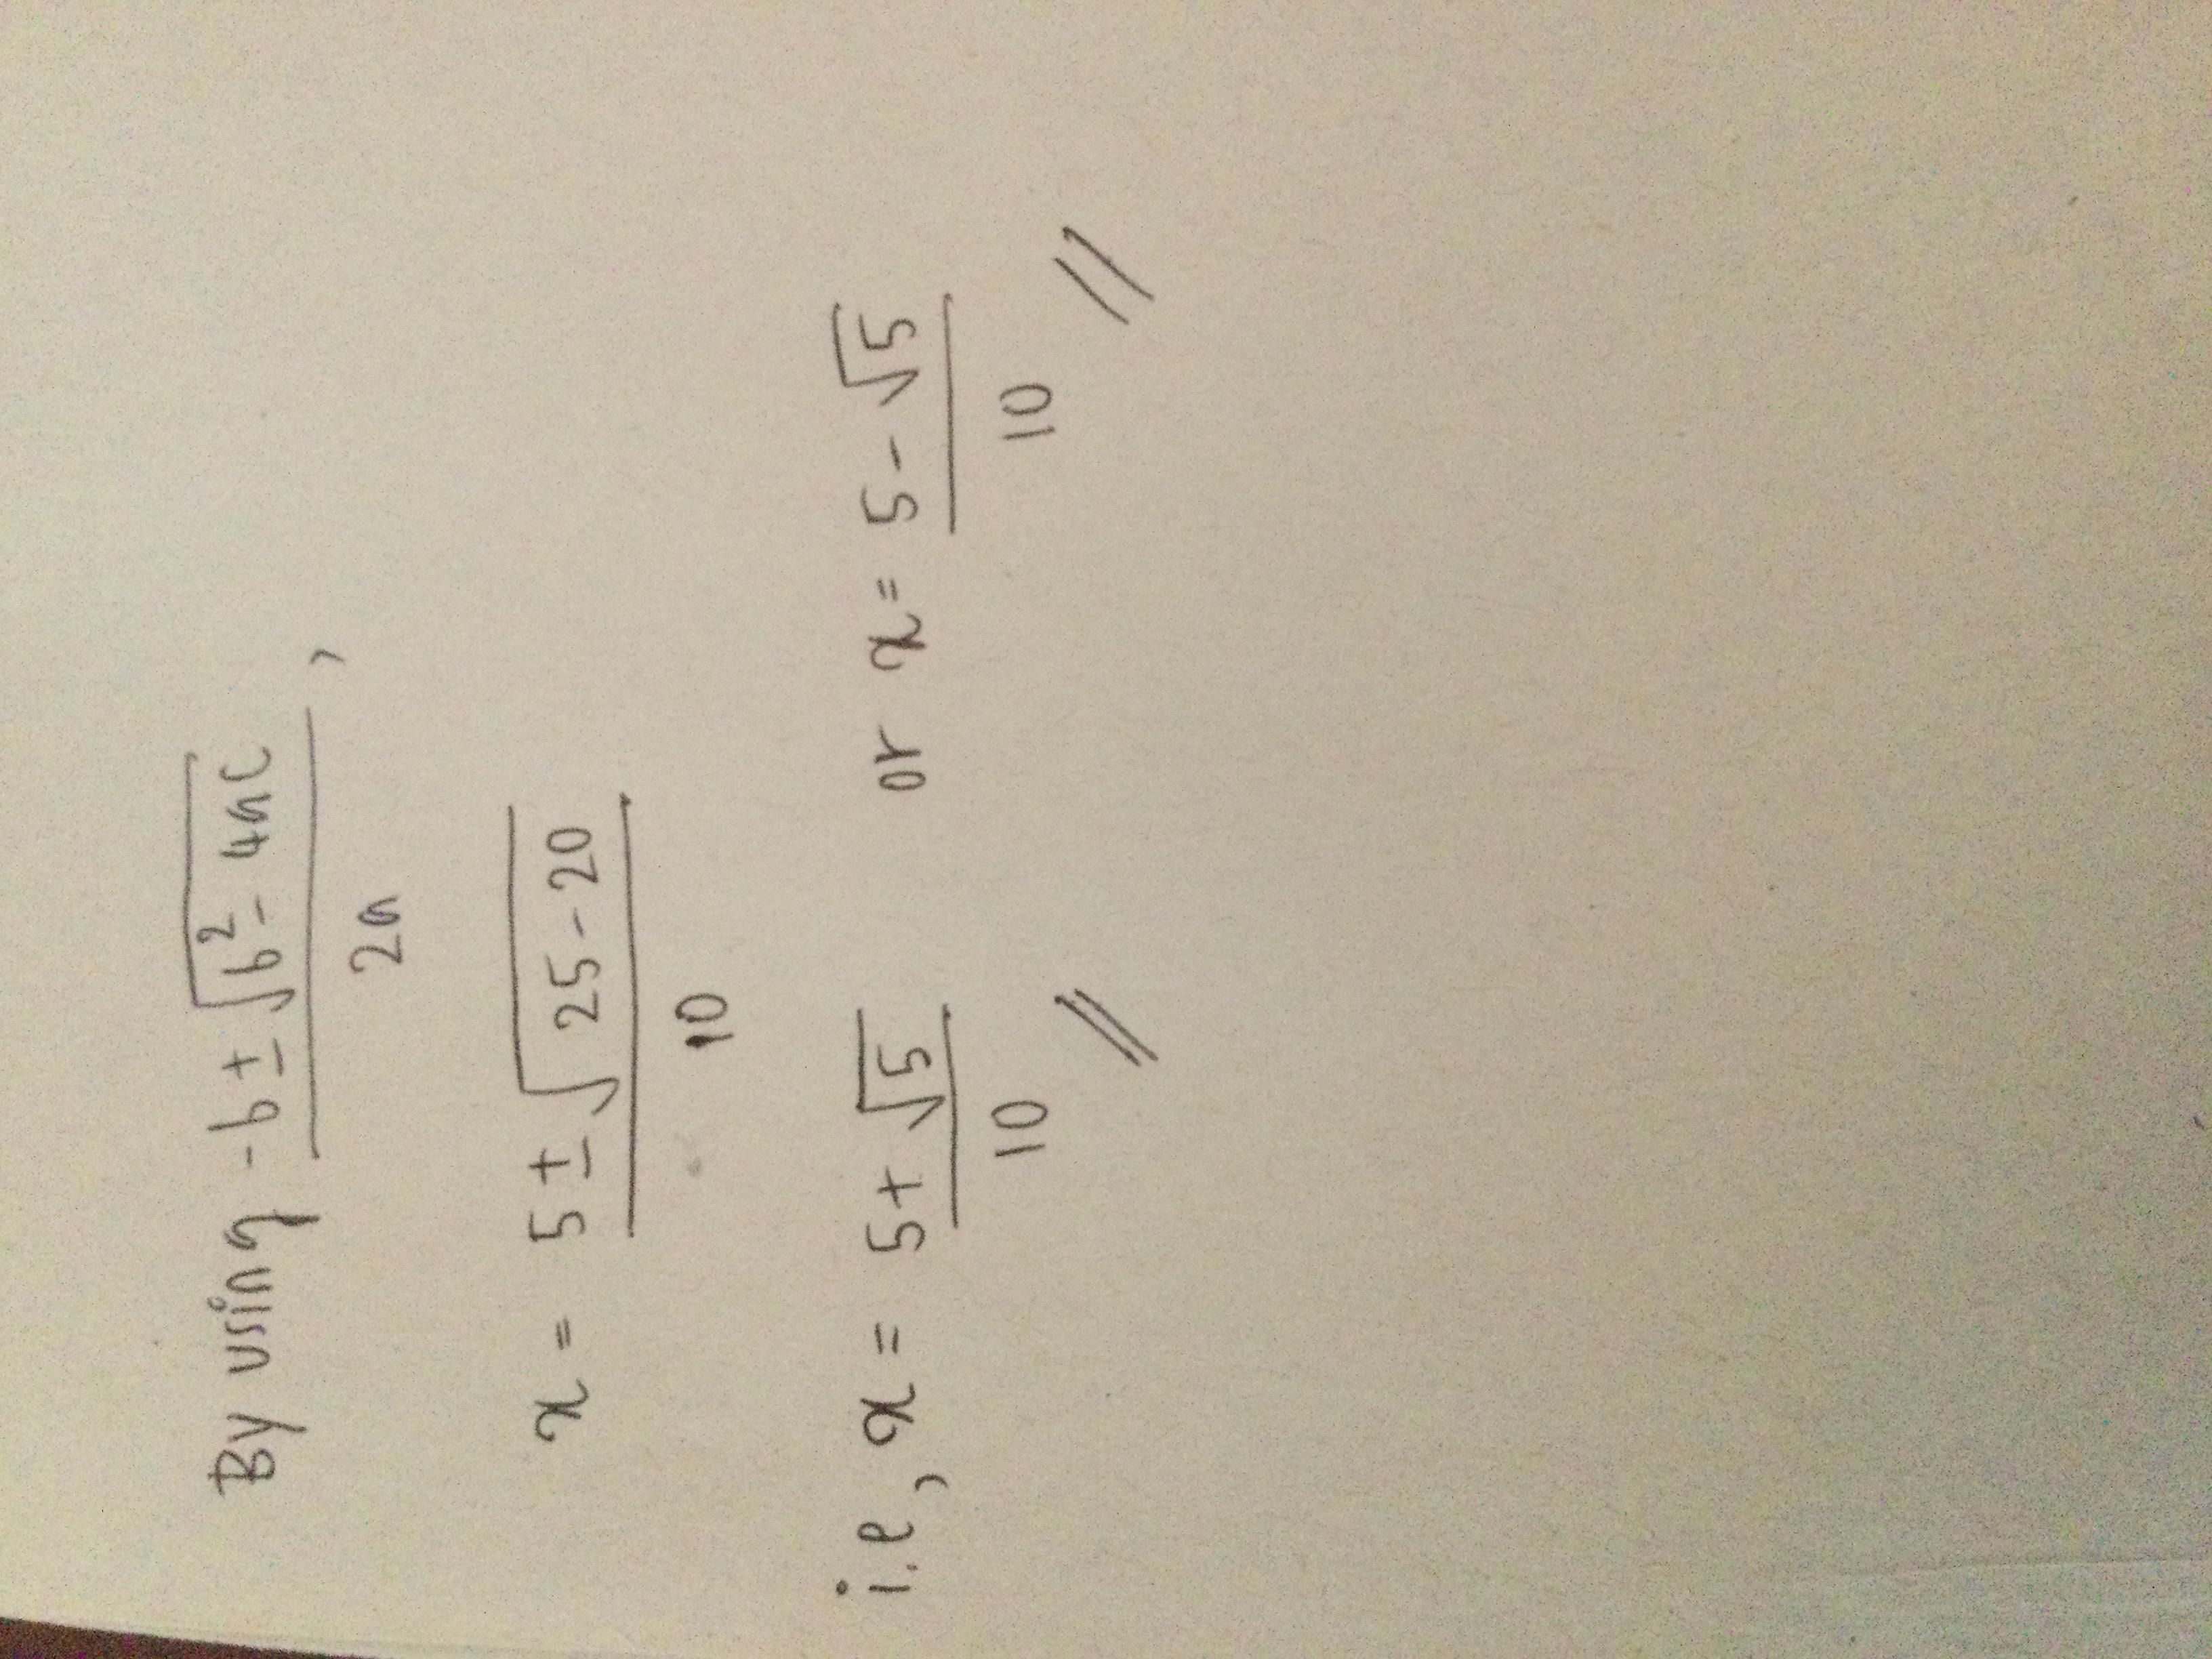 By using -b ± √b² - 4ac ,
2a
x = 5 ± √25 - 20
10
i.e, x = 5 + √5 or x = 5 - √5
10 // 10 //